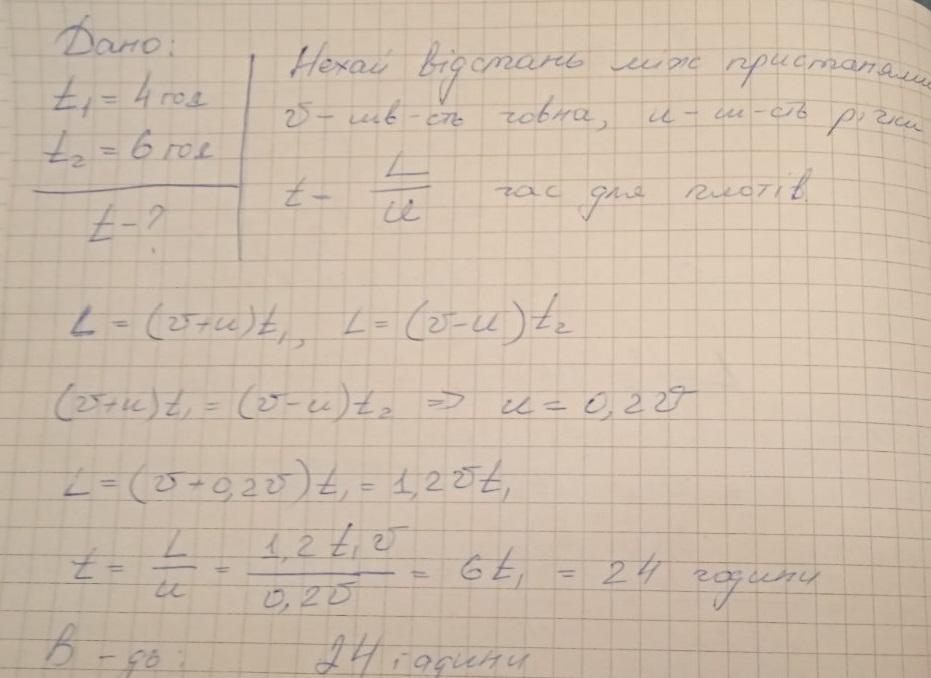 Дано:
t₁ = 4 год
t₂ = 6 год
t - ?
Нехай відстань між пристанями
v - шв-сть човна, u - ш-сть річки
t - L/u час для плотів
L = (v+u)t₁, L = (v-u)t₂
(v+u)t₁ = (v-u)t₂ => u = 0,2v
L = (v+0,2v)t₁ = 1,2vt₁
t = L/u = 1,2t₁v/0,2v = 6t₁ = 24 години
В-дь: 24 години